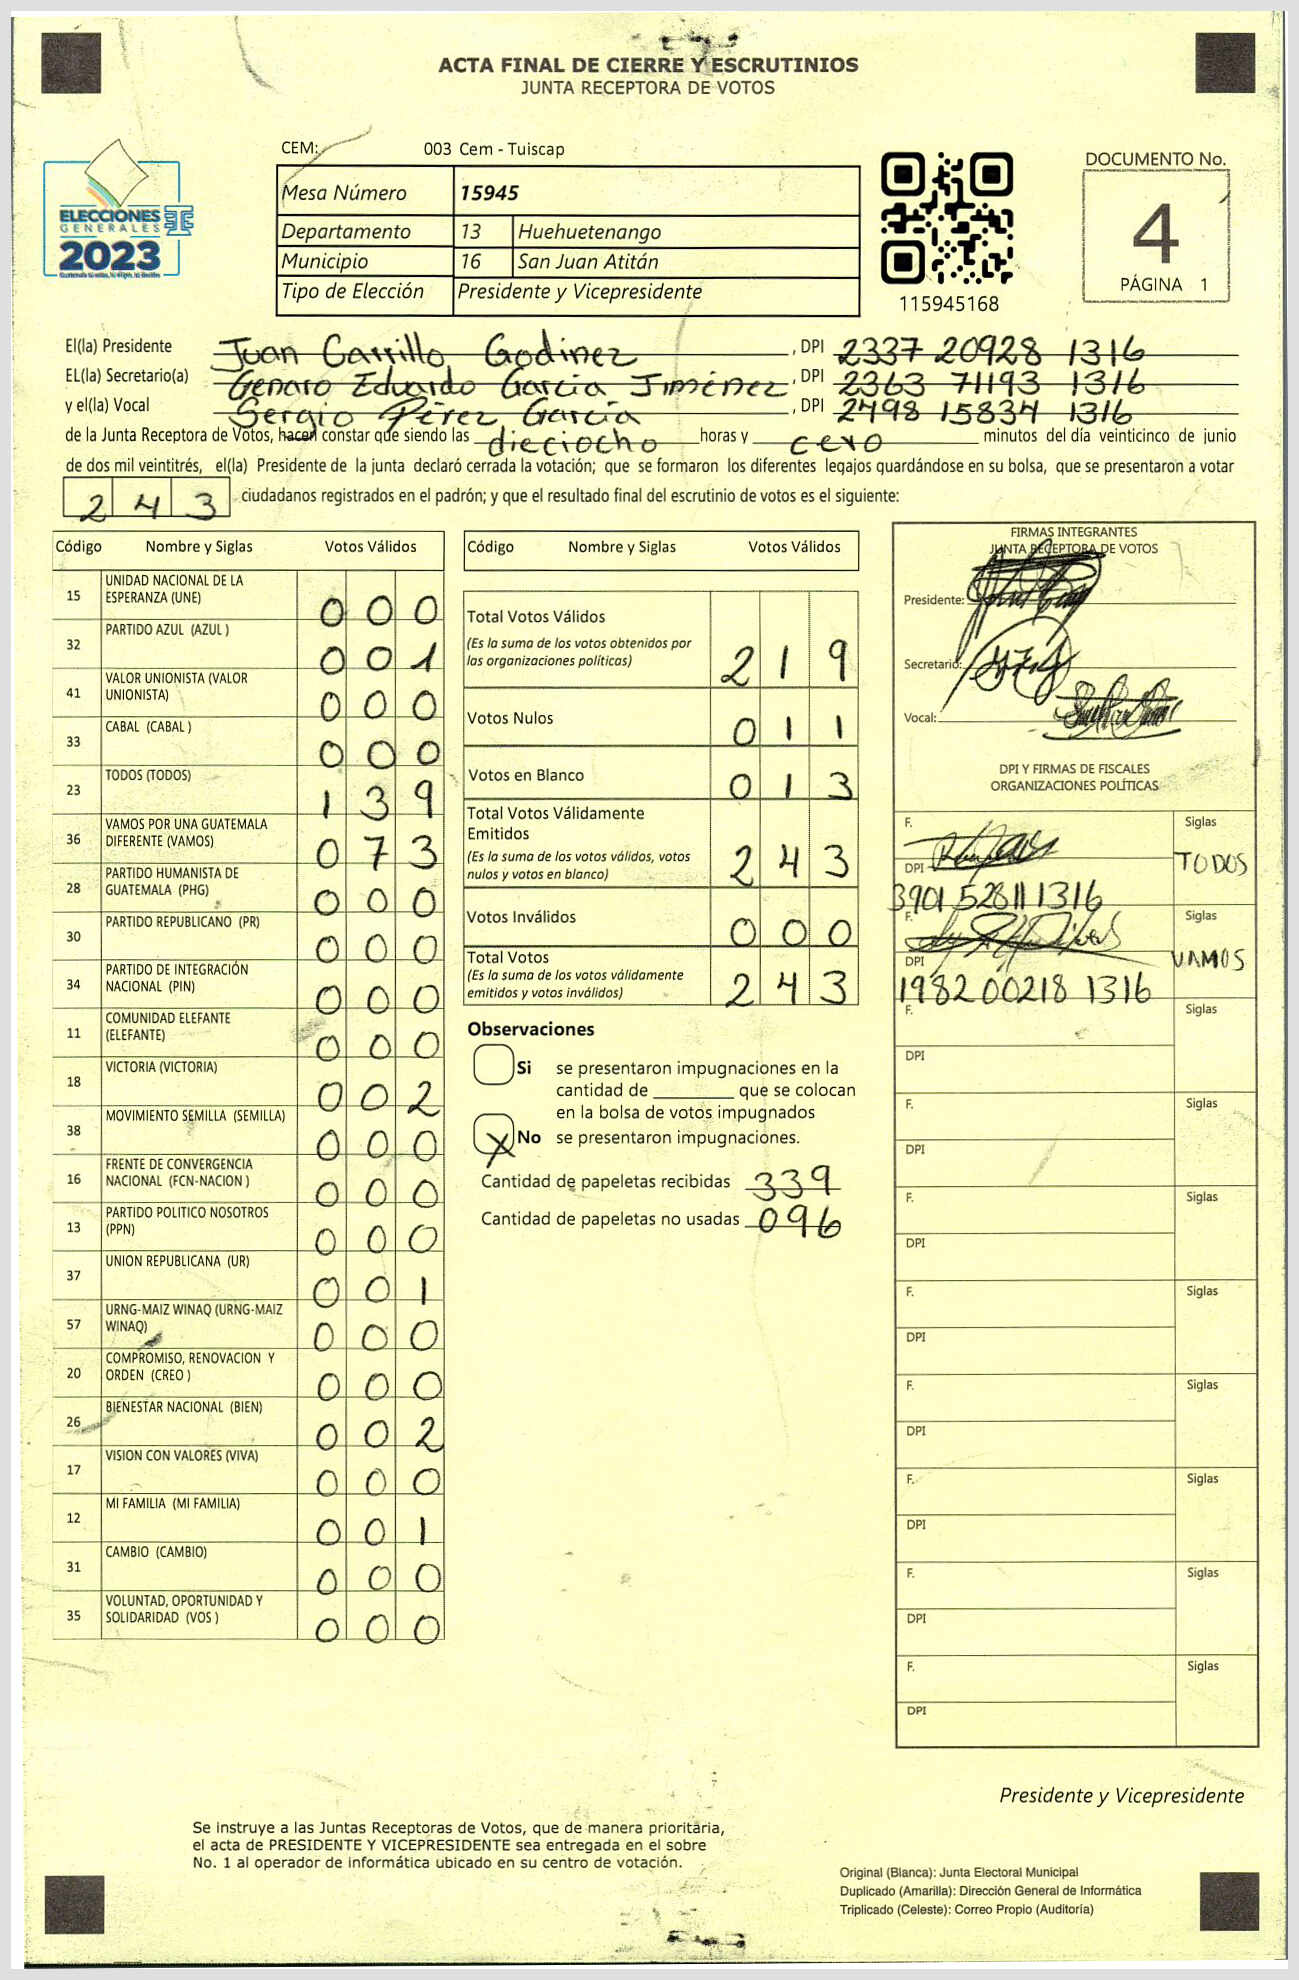 ACTA FINAL DE CIERRE Y ESCRUTINIOS
JUNTA RECEPTORA DE VOTOS
CEM: 003 Cem - Tuiscap
ELECCIONES
GENERALES
2023
Mesa Número 15945
Departamento 13 Huehuetenango
Municipio 16 San Juan Atitán
Tipo de Elección Presidente y Vicepresidente
115945168
DOCUMENTO No.
4
PÁGINA 1
El(la) Presidente Juan Carrillo Godinez , DPI 2337 20928 1316
EL(la) Secretario(a) Genaro Eduardo Garcia Jiménez , DPI 2363 71193 1316
y el(la) Vocal Sergio Pérez García , DPI 2498 15834 1316
de la Junta Receptora de Votos, hacen constar que siendo las dieciocho horas y cero minutos del día veinticinco de junio
de dos mil veintitrés, el(la) Presidente de la junta declaró cerrada la votación; que se formaron los diferentes legajos guardándose en su bolsa, que se presentaron a votar
243 ciudadanos registrados en el padrón; y que el resultado final del escrutinio de votos es el siguiente:
Código Nombre y Siglas Votos Válidos
15 UNIDAD NACIONAL DE LA
ESPERANZA (UNE) 000
32 PARTIDO AZUL (AZUL ) 001
41 VALOR UNIONISTA (VALOR
UNIONISTA) 000
33 CABAL (CABAL ) 000
23 TODOS (TODOS) 139
36 VAMOS POR UNA GUATEMALA
DIFERENTE (VAMOS) 073
28 PARTIDO HUMANISTA DE
GUATEMALA (PHG) 000
30 PARTIDO REPUBLICANO (PR) 000
34 PARTIDO DE INTEGRACIÓN
NACIONAL (PIN) 000
11 COMUNIDAD ELEFANTE
(ELEFANTE) 000
18 VICTORIA (VICTORIA) 002
38 MOVIMIENTO SEMILLA (SEMILLA) 000
16 FRENTE DE CONVERGENCIA
NACIONAL (FCN-NACION ) 000
13 PARTIDO POLITICO NOSOTROS
(PPN) 000
37 UNION REPUBLICANA (UR) 001
57 URNG-MAIZ WINAQ (URNG-MAIZ
WINAQ) 000
20 COMPROMISO, RENOVACION Y
ORDEN (CREO ) 000
26 BIENESTAR NACIONAL (BIEN) 002
17 VISION CON VALORES (VIVA) 000
12 MI FAMILIA (MI FAMILIA) 001
31 CAMBIO (CAMBIO) 000
35 VOLUNTAD, OPORTUNIDAD Y
SOLIDARIDAD (VOS ) 000
Código Nombre y Siglas Votos Válidos
Total Votos Válidos
(Es la suma de los votos obtenidos por
las organizaciones políticas) 219
Votos Nulos 011
Votos en Blanco 013
Total Votos Válidamente
Emitidos
(Es la suma de los votos válidos, votos
nulos y votos en blanco) 243
Votos Inválidos 000
Total Votos
(Es la suma de los votos válidamente
emitidos y votos inválidos) 243
Observaciones
Si se presentaron impugnaciones en la
cantidad de ________ que se colocan
en la bolsa de votos impugnados
X No se presentaron impugnaciones.
Cantidad de papeletas recibidas 339
Cantidad de papeletas no usadas 096
FIRMAS INTEGRANTES
JUNTA RECEPTORA DE VOTOS
Presidente:
Secretario:
Vocal:
DPI Y FIRMAS DE FISCALES
ORGANIZACIONES POLÍTICAS
F. Siglas
TODOS
DPI
3901 52811 1316
F. Siglas
VAMOS
DPI
1982 00218 1316
F. Siglas
DPI
F. Siglas
DPI
F. Siglas
DPI
F. Siglas
DPI
F. Siglas
DPI
F. Siglas
DPI
F. Siglas
DPI
F. Siglas
DPI
Presidente y Vicepresidente
Se instruye a las Juntas Receptoras de Votos, que de manera prioritaria,
el acta de PRESIDENTE Y VICEPRESIDENTE sea entregada en el sobre
No. 1 al operador de informática ubicado en su centro de votación.
Original (Blanca): Junta Electoral Municipal
Duplicado (Amarilla): Dirección General de Informática
Triplicado (Celeste): Correo Propio (Auditoría)